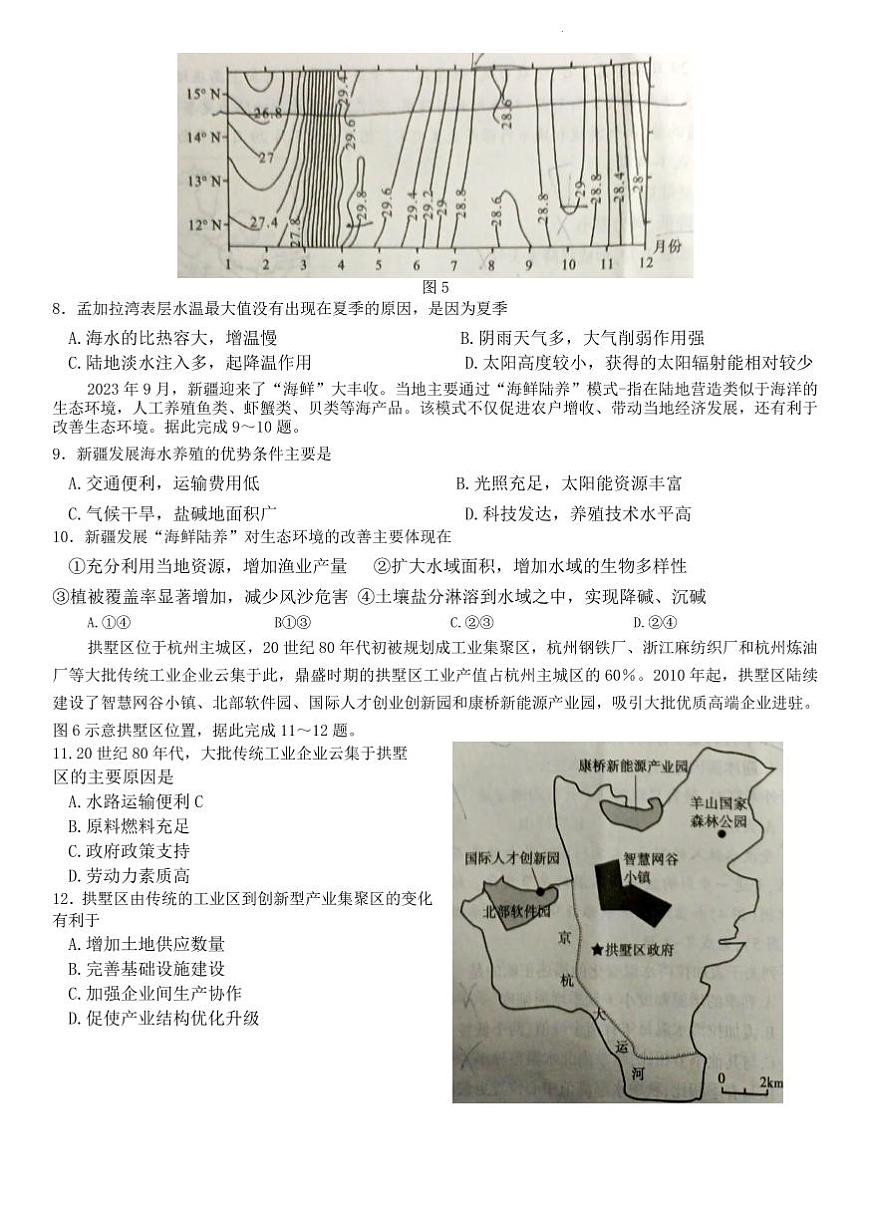 15° N
14° N
13° N
12° N
26.8
27
27.4
27.8
29.4
29.6
29.8
29.6
29.4
29.2
29
28.8
28.6
28.6
28.8
29
28.8
28.4
28
1 2 3 4 5 6 7 8 9 10 11 12
月份
图 5
8．孟加拉湾表层水温最大值没有出现在夏季的原因，是因为夏季
A.海水的比热容大，增温慢 B.阴雨天气多，大气削弱作用强
C.陆地淡水注入多，起降温作用 D.太阳高度较小，获得的太阳辐射能相对较少
2023 年 9 月，新疆迎来了“海鲜”大丰收。当地主要通过“海鲜陆养”模式-指在陆地营造类似于海洋的
生态环境，人工养殖鱼类、虾蟹类、贝类等海产品。该模式不仅促进农户增收、带动当地经济发展，还有利于
改善生态环境。据此完成 9～10 题。
9．新疆发展海水养殖的优势条件主要是
A.交通便利，运输费用低 B.光照充足，太阳能资源丰富
C.气候干旱，盐碱地面积广 D.科技发达，养殖技术水平高
10．新疆发展“海鲜陆养”对生态环境的改善主要体现在
①充分利用当地资源，增加渔业产量 ②扩大水域面积，增加水域的生物多样性
③植被覆盖率显著增加，减少风沙危害 ④土壤盐分淋溶到水域之中，实现降碱、沉碱
A.①④ B①③ C.②③ D.②④
拱墅区位于杭州主城区，20 世纪 80 年代初被规划成工业集聚区，杭州钢铁厂、浙江麻纺织厂和杭州炼油
厂等大批传统工业企业云集于此，鼎盛时期的拱墅区工业产值占杭州主城区的 60％。2010 年起，拱墅区陆续
建设了智慧网谷小镇、北部软件园、国际人才创业创新园和康桥新能源产业园，吸引大批优质高端企业进驻。
图 6 示意拱墅区位置，据此完成 11～12 题。
11.20 世纪 80 年代，大批传统工业企业云集于拱墅
区的主要原因是
A.水路运输便利 C
B.原料燃料充足
C.政府政策支持
D.劳动力素质高
12．拱墅区由传统的工业区到创新型产业集聚区的变化
有利于
A.增加土地供应数量
B.完善基础设施建设
C.加强企业间生产协作
D.促使产业结构优化升级
康桥新能源产业园
羊山国家
森林公园
国际人才创新园
智慧网谷
小镇
北部软件园
★拱墅区政府
京
杭
大
运
河
0 2km